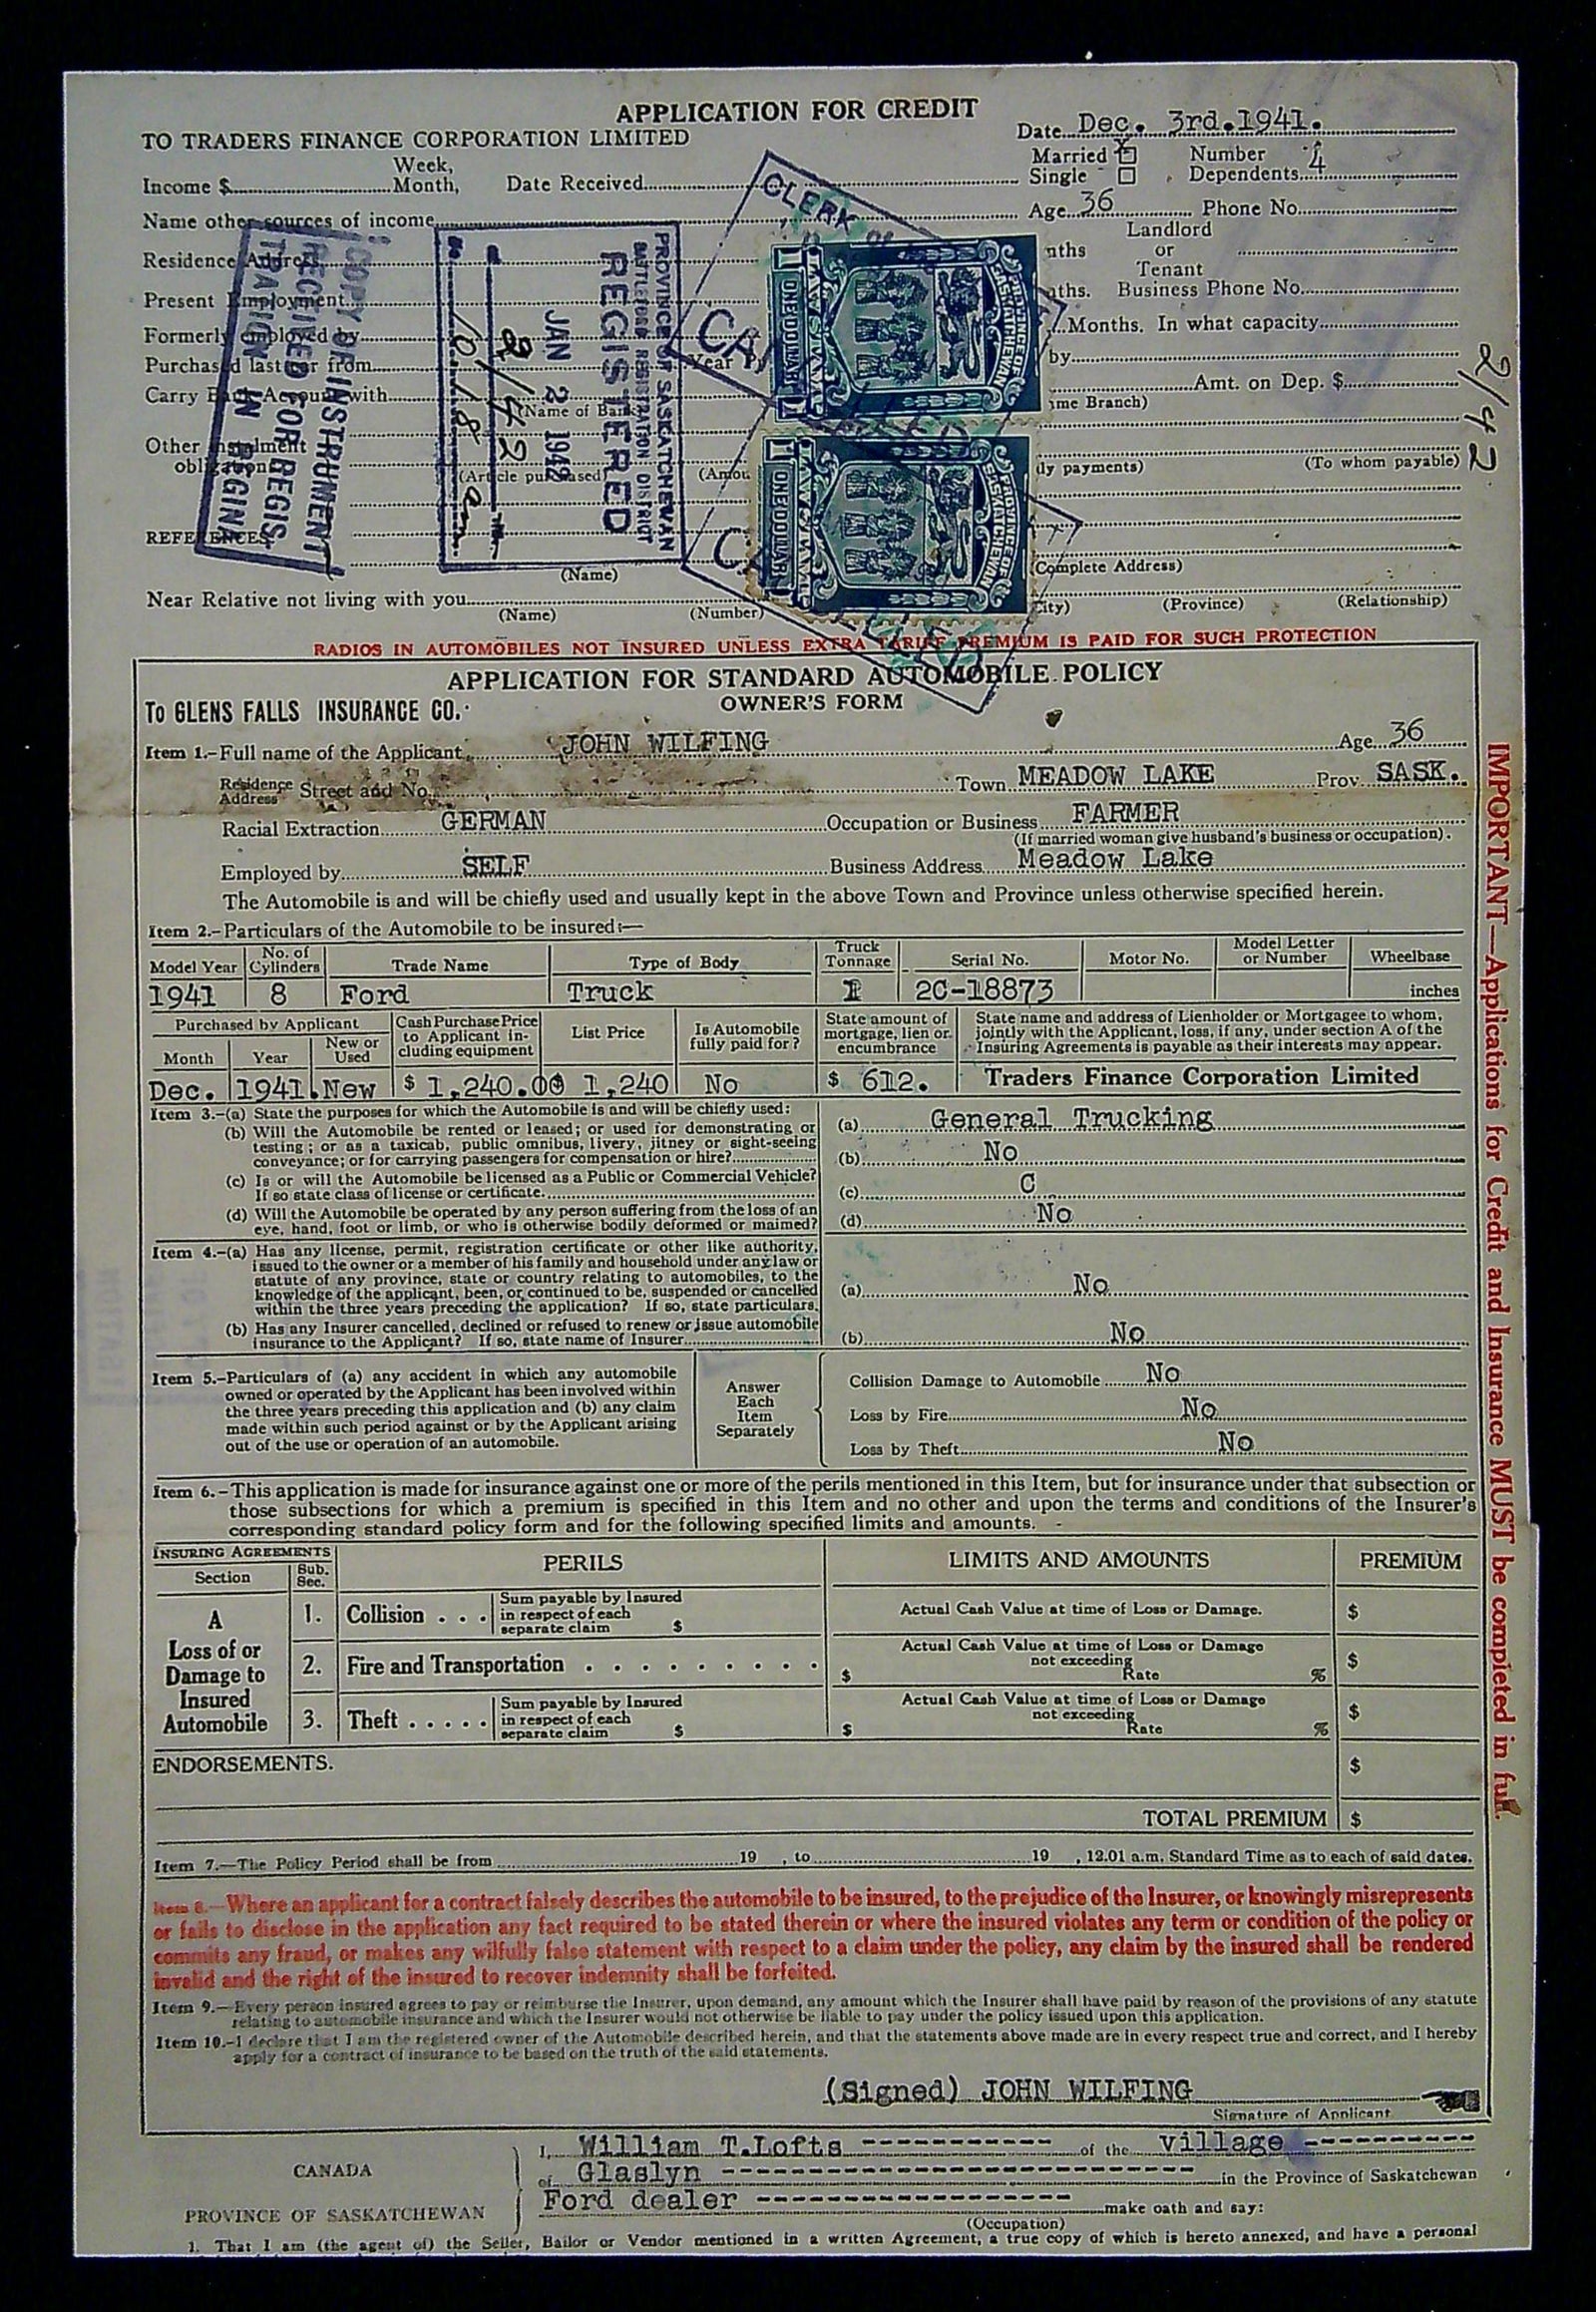 APPLICATION FOR CREDIT
TO TRADERS FINANCE CORPORATION LIMITED
Date Dec. 3rd.1941.
Week,
Income $ Month, Date Received
Married X Number
Single Dependents 4
Name other sources of income
Age 36 Phone No.
Landlord
Residence Address nths or
Tenant
Present Employment nths. Business Phone No.
Formerly Employed by Months. In what capacity
Purchased last car from Year by
Carry Bank Account with Amt. on Dep. $
(Name of Bank) me Branch)
Other Instalment
obligations
(Article purchased) (Amou dy payments) (To whom payable)
REFERENCES
(Name) (Complete Address)
Near Relative not living with you
(Name) (Number) City) (Province) (Relationship)
COPY OF INSTRUMENT
RECEIVED FOR REGIS-
TRATION IN REGINA
PROVINCE OF SASKATCHEWAN
BATTLEFORD REGISTRATION DISTRICT
REGISTERED
JAN 2 1942
2/42
10.18 am
CLERK
CANCELLED
PROVINCE OF
SASKATCHEWAN
LAW STAMP
1 ONE DOLLAR 1
CANCELLED
PROVINCE OF
SASKATCHEWAN
LAW STAMP
1 ONE DOLLAR 1
2/42
RADIOS IN AUTOMOBILES NOT INSURED UNLESS EXTRA TARIFF PREMIUM IS PAID FOR SUCH PROTECTION
APPLICATION FOR STANDARD AUTOMOBILE POLICY
To GLENS FALLS INSURANCE CO. OWNER'S FORM
Item 1.-Full name of the Applicant JOHN WILFING Age 36
Residence
Address Street and No. Town MEADOW LAKE Prov. SASK.
Racial Extraction GERMAN Occupation or Business FARMER
(If married woman give husband's business or occupation).
Employed by SELF Business Address Meadow Lake
The Automobile is and will be chiefly used and usually kept in the above Town and Province unless otherwise specified herein.
Item 2.-Particulars of the Automobile to be insured:—
Model Year No. of Cylinders Trade Name Type of Body Truck Tonnage Serial No. Motor No. Model Letter or Number Wheelbase
1941 8 Ford Truck 1 2C-18873 inches
Purchased by Applicant
Month Year New or Used Cash Purchase Price to Applicant including equipment List Price Is Automobile fully paid for? State amount of mortgage, lien or encumbrance State name and address of Lienholder or Mortgagee to whom, jointly with the Applicant, loss, if any, under section A of the Insuring Agreements is payable as their interests may appear.
Dec. 1941. New $ 1,240.00 1,240 No $ 612. Traders Finance Corporation Limited
Item 3.-(a) State the purposes for which the Automobile is and will be chiefly used: (a) General Trucking
(b) Will the Automobile be rented or leased; or used for demonstrating or
testing; or as a taxicab, public omnibus, livery, jitney or sight-seeing
conveyance; or for carrying passengers for compensation or hire? (b) No
(c) Is or will the Automobile be licensed as a Public or Commercial Vehicle?
If so state class of license or certificate. (c) C
(d) Will the Automobile be operated by any person suffering from the loss of an
eye, hand, foot or limb, or who is otherwise bodily deformed or maimed? (d) No
Item 4.-(a) Has any license, permit, registration certificate or other like authority,
issued to the owner or a member of his family and household under any law or
statute of any province, state or country relating to automobiles, to the
knowledge of the applicant, been, or continued to be, suspended or cancelled
within the three years preceding the application? If so, state particulars. (a) No
(b) Has any Insurer cancelled, declined or refused to renew or issue automobile
insurance to the Applicant? If so, state name of Insurer (b) No
Item 5.-Particulars of (a) any accident in which any automobile
owned or operated by the Applicant has been involved within
the three years preceding this application and (b) any claim
made within such period against or by the Applicant arising
out of the use or operation of an automobile.
Answer
Each
Item
Separately
Collision Damage to Automobile No
Loss by Fire No
Loss by Theft No
Item 6.-This application is made for insurance against one or more of the perils mentioned in this Item, but for insurance under that subsection or
those subsections for which a premium is specified in this Item and no other and upon the terms and conditions of the Insurer's
corresponding standard policy form and for the following specified limits and amounts.
INSURING AGREEMENTS
Section Sub. Sec. PERILS LIMITS AND AMOUNTS PREMIUM
A
Loss of or
Damage to
Insured
Automobile
1. Collision . . . Sum payable by Insured in respect of each separate claim $ Actual Cash Value at time of Loss or Damage. $
2. Fire and Transportation . . . . . . . . . . $ Actual Cash Value at time of Loss or Damage not exceeding Rate % $
3. Theft . . . . . Sum payable by Insured in respect of each separate claim $ $ Actual Cash Value at time of Loss or Damage not exceeding Rate % $
ENDORSEMENTS. $
TOTAL PREMIUM $
Item 7.—The Policy Period shall be from 19 , to 19 , 12.01 a.m. Standard Time as to each of said dates.
Item 8.—Where an applicant for a contract falsely describes the automobile to be insured, to the prejudice of the Insurer, or knowingly misrepresents
or fails to disclose in the application any fact required to be stated therein or where the insured violates any term or condition of the policy or
commits any fraud, or makes any wilfully false statement with respect to a claim under the policy, any claim by the insured shall be rendered
invalid and the right of the insured to recover indemnity shall be forfeited.
Item 9.—Every person insured agrees to pay or reimburse the Insurer, upon demand, any amount which the Insurer shall have paid by reason of the provisions of any statute
relating to automobile insurance and which the Insurer would not otherwise be liable to pay under the policy issued upon this application.
Item 10.-I declare that I am the registered owner of the Automobile described herein, and that the statements above made are in every respect true and correct, and I hereby
apply for a contract of insurance to be based on the truth of the said statements.
(Signed) JOHN WILFING
Signature of Applicant
IMPORTANT—Applications for Credit and Insurance MUST be completed in full.
CANADA
PROVINCE OF SASKATCHEWAN
I, William T.Lofts ----------- of the village ----------
of Glaslyn --------------------------- in the Province of Saskatchewan
Ford dealer ------------------ make oath and say:
(Occupation)
1. That I am (the agent of) the Seller, Bailor or Vendor mentioned in a written Agreement, a true copy of which is hereto annexed, and have a personal